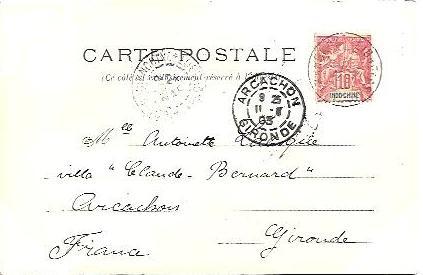 CARTE POSTALE
(Ce côté est exclusivement réservé à
10
INDO-CHINE
ARCACHON
9 25
11 - 11
03
GIRONDE
Mlle Antoinette
villa "Claude-Bernard"
Arcachon
Gironde
France